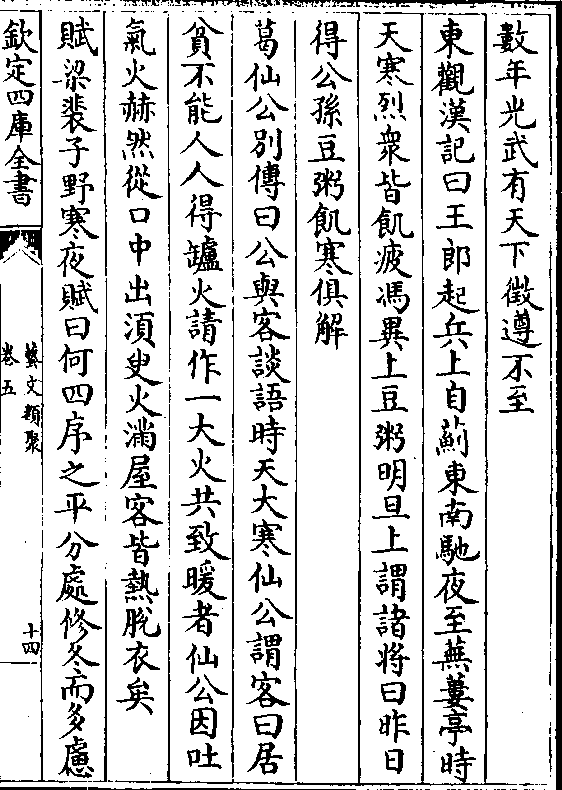 數年光武有天下徵遵不至
東觀漢記曰王郎起兵上自薊東南馳夜至蕪蔞亭時
天寒烈衆皆飢疲馮異上豆粥明旦上謂諸將曰昨日
得公孫豆粥飢寒俱解
葛仙公別傳曰公與客談語時天大寒仙公謂客曰居
貧不能人人得罏火請作一大火共致暖者仙公因吐
氣火赫然從口中出湏叟火滿屋客皆熱脫衣矣
賦梁裴子野寒夜賦曰何四序之平分處修冬而多慮
欽定四庫全書
藝文類聚
卷五
十四